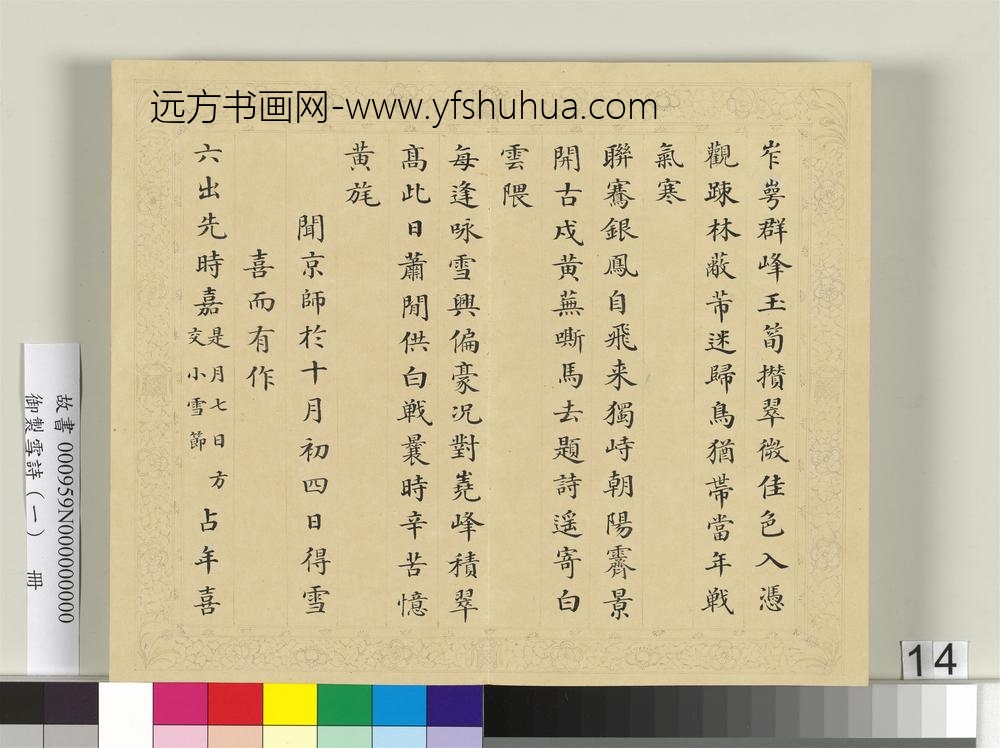 远方书画网-www.yfshuhua.com
岞崿群峰玉筍攢翠微佳色入憑
觀踈林蔽芾迷歸鳥猶帶當年戰
氣寒
聯騫銀鳳自飛来獨峙朝陽霽景
開古戍黄蕪嘶馬去題詩遥寄白
雲隈
每逢咏雪興偏豪况對嶤峰積翠
髙此日蕭閒供白戰曩時辛苦憶
黄旄
聞京師於十月初四日得雪
喜而有作
六出先時嘉是月七日方交小雪節占年喜
故書 000959N000000000
御製雪詩(一) 冊
14